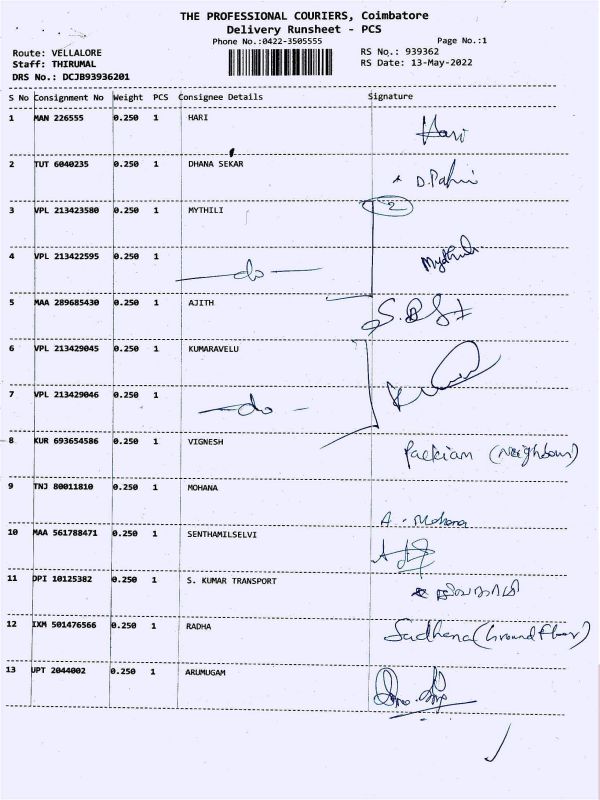 THE PROFESSIONAL COURIERS, Coimbatore
Delivery Runsheet - PCS
Phone No.:0422-3505555 Page No.:1
Route: VELLALORE RS No.: 939362
Staff: THIRUMAL RS Date: 13-May-2022
DRS No.: DCJB93936201
S No Consignment No Weight PCS Consignee Details Signature
1 MAN 226555 0.250 1 HARI Hari
2 TUT 6040235 0.250 1 DHANA SEKAR
3 VPL 213423580 0.250 1 MYTHILI 2
4 VPL 213422595 0.250 1 do Mythili
5 MAA 289685430 0.250 1 AJITH
6 VPL 213429045 0.250 1 KUMARAVELU
7 VPL 213429046 0.250 1 do
8 KUR 693654586 0.250 1 VIGNESH Packiam (Neighbour)
9 TNJ 80011810 0.250 1 MOHANA A. Mohana
10 MAA 561788471 0.250 1 SENTHAMILSELVI
11 DPI 10125382 0.250 1 S. KUMAR TRANSPORT
12 IXM 501476566 0.250 1 RADHA Sadhana (Ground Floor)
13 UPT 2044002 0.250 1 ARUMUGAM